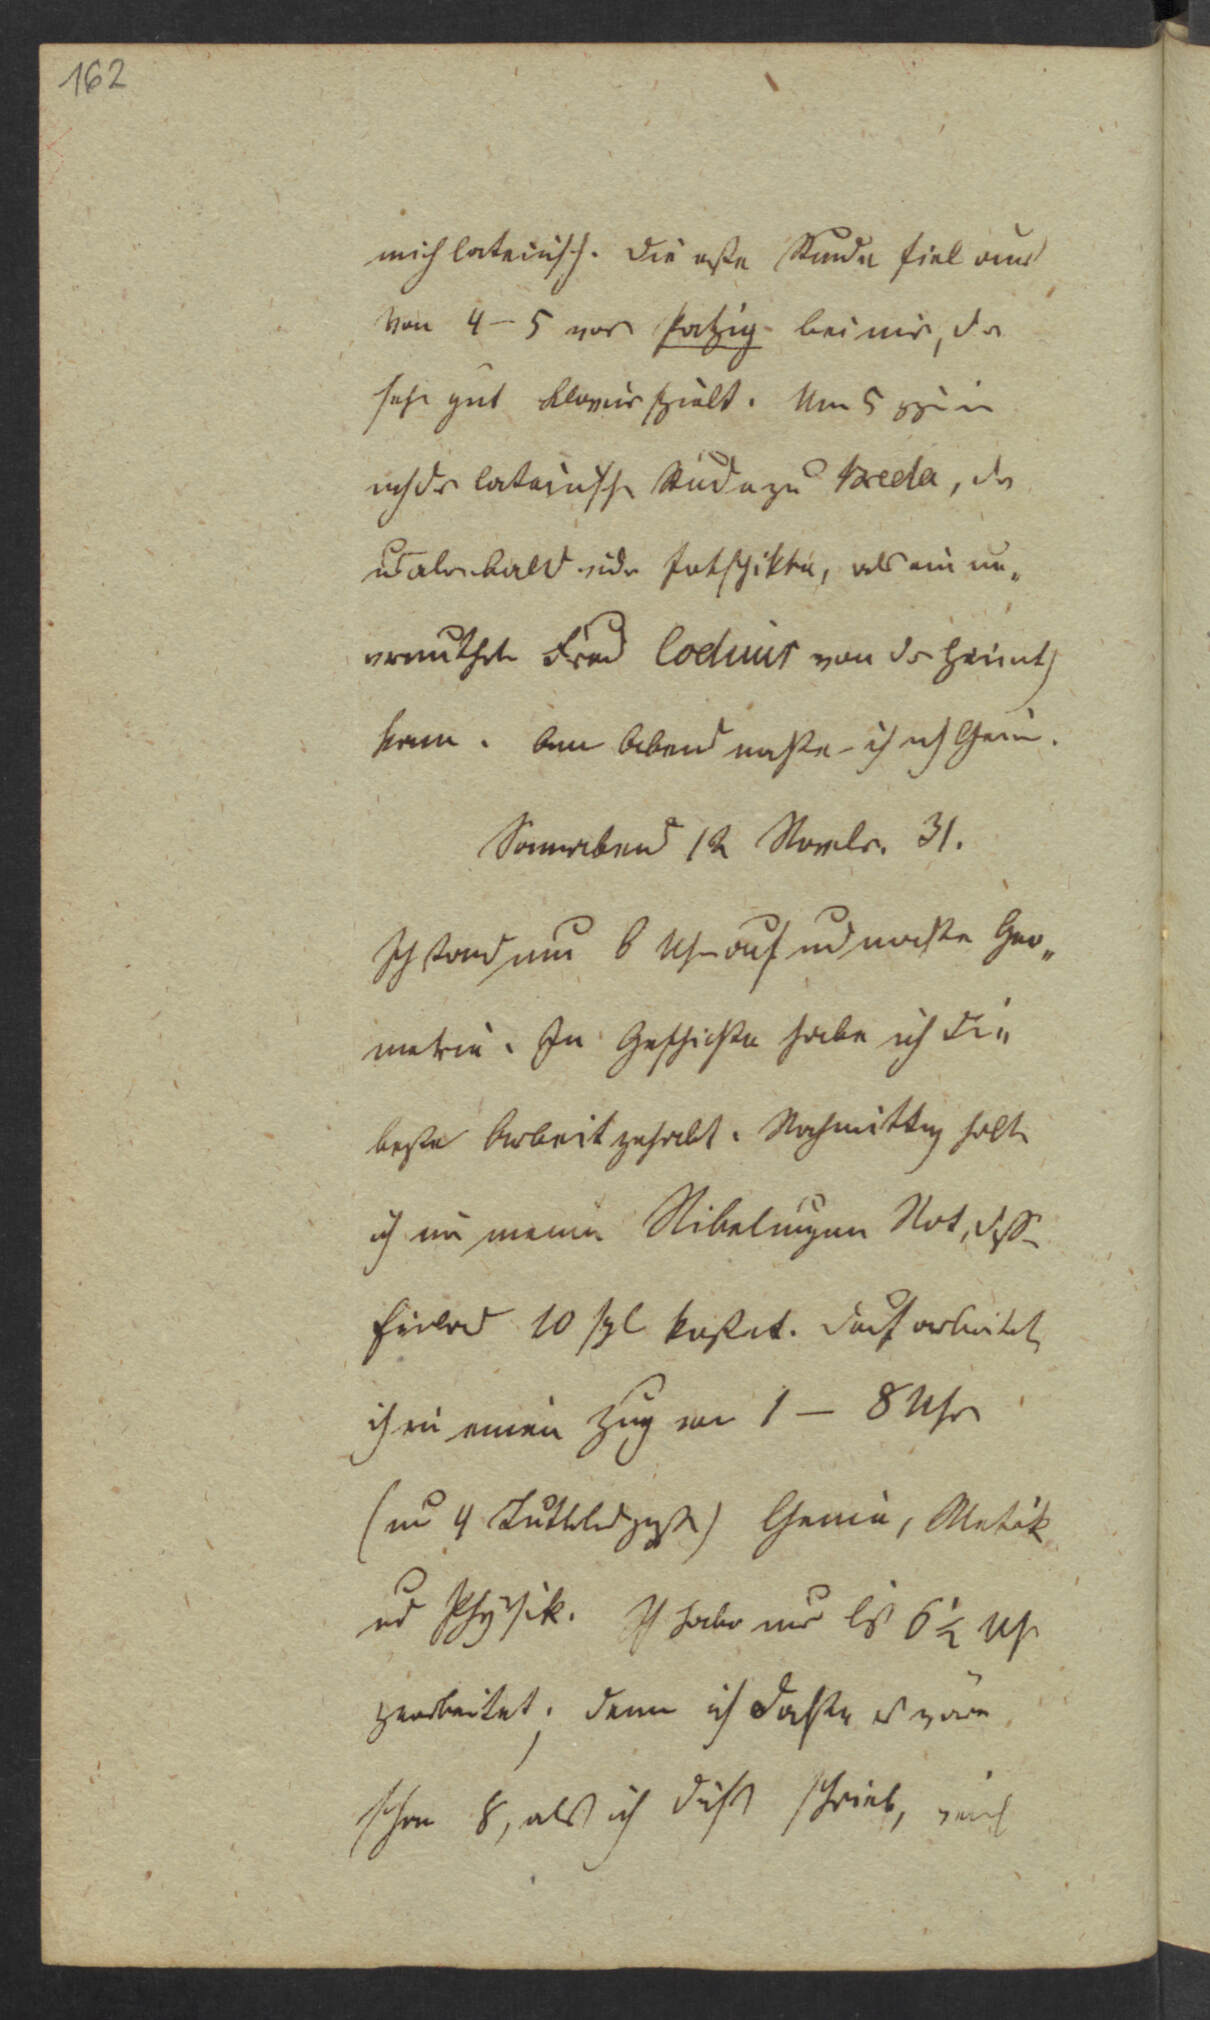 162
mich lateinisch. Die erste Stunde fiel aus
von 4 – 5 war Patzig bei mir, der
sehr gut Klavier spielt. Um 5 ging ich
nach der lateinischen Stunde zu Breda, der
uns aber bald wieder fortschikte, als ein un„
vermutheter Freund Codius von der Heimat
kam. Am Abend machte ich noch Chemie.
Sonnabend 12 Novbr. 31.
Ich stand um 6 Uhr auf und machte Geo„
metrie. In Geschichte habe ich die
beste Arbeit gehabt. Nachmittag holte
ich mir meine Nibelungen Not, dessen
Einband 10 sgl kostet. Drauf arbeitete
ich in einem Zug von 1 – 8 Uhr
(nur 4 ) Chemie, Metrik
und Physik. Ich habe nur bis 6½ Uhr
gearbeitet; denn ich dachte es wäre
schon 8, als ich dieß schrieb,